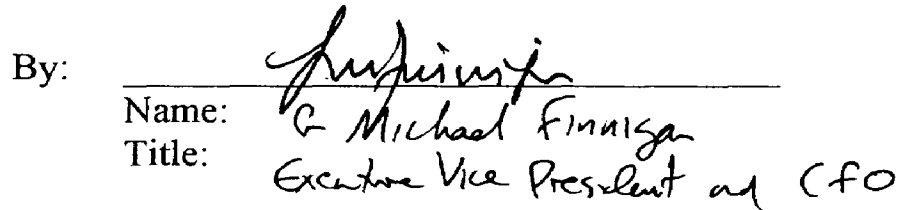 By:
Name: G Michael Finnigan
Title: Executive Vice President and CFO